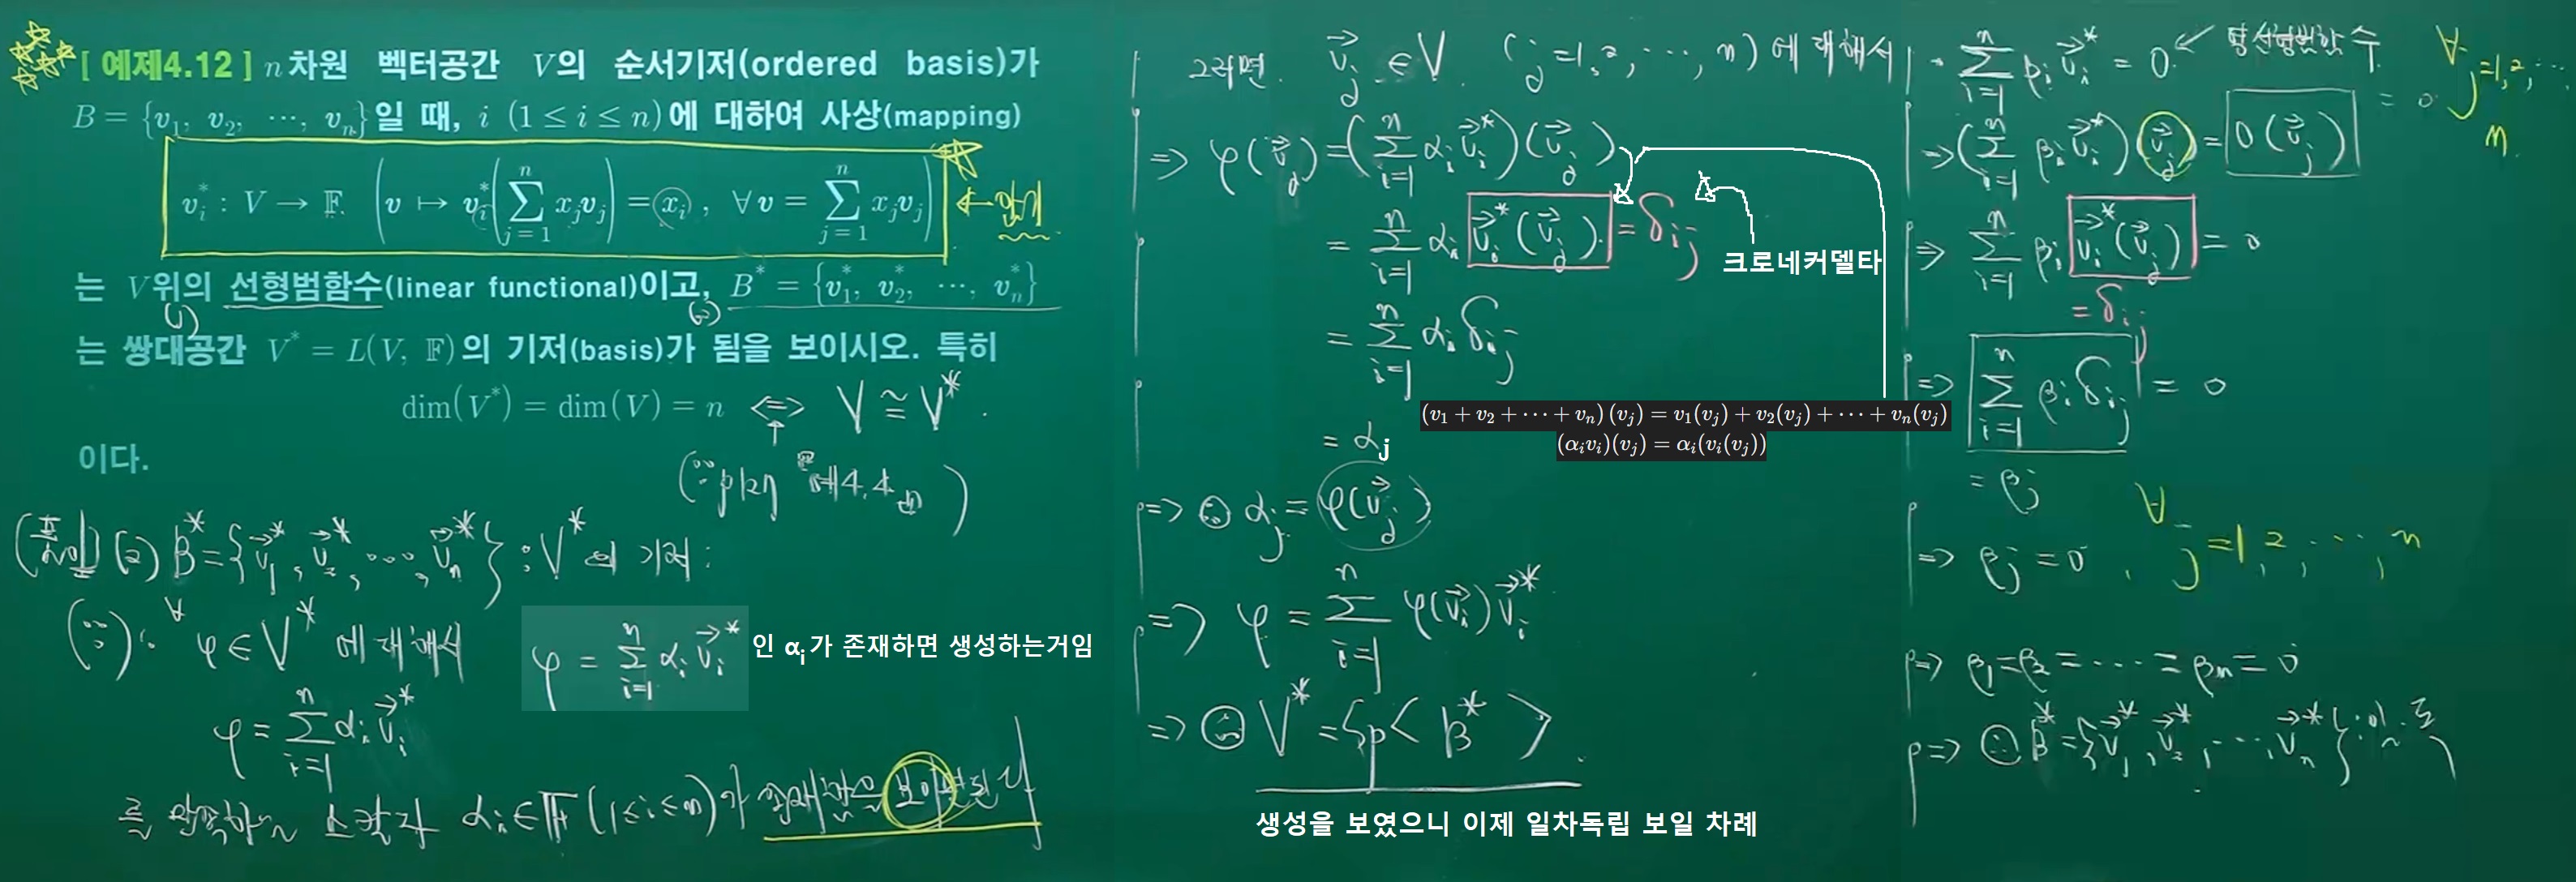 [ 예제4.12 ] n차원 벡터공간 V의 순서기저(ordered basis)가
B = {v₁, v₂, ⋯, vₙ}일 때, i (1 ≤ i ≤ n)에 대하여 사상(mapping)
vᵢ* : V → 𝔽 (v ↦ vᵢ*(∑_{j=1}^{n} xⱼvⱼ) = xᵢ, ∀v = ∑_{j=1}^{n} xⱼvⱼ) ← 암기
는 V위의 선형범함수(linear functional)이고, B* = {v₁*, v₂*, ⋯, vₙ*}
(1) (2)
는 쌍대공간 V* = L(V, 𝔽)의 기저(basis)가 됨을 보이시오. 특히
dim(V*) = dim(V) = n ⟺ V ≅ V*.
이다.
(∵ 예4.4)
(풀이) (2) B* = {v⃗₁*, v⃗₂*, ⋯, v⃗ₙ*} : V*의 기저 :
(∵) · ∀φ ∈ V* 에 대해서
φ = ∑_{i=1}^{n} αᵢ v⃗ᵢ* 인 αᵢ가 존재하면 생성하는거임
φ = ∑_{i=1}^{n} αᵢ v⃗ᵢ*
를 만족하는 스칼라 αᵢ ∈ 𝔽 (1≤i≤n)가 존재함을 보이면 된다
그러면. v⃗ⱼ ∈ V. (j=1, 2, ⋯, n)에 대해서
⇒ φ(v⃗ⱼ) = (∑_{i=1}^{n} αᵢ v⃗ᵢ*)(v⃗ⱼ)
= ∑_{i=1}^{n} αᵢ v⃗ᵢ*(v⃗ⱼ) = δᵢⱼ
크로네커델타
= ∑_{i=1}^{n} αᵢ δᵢⱼ
(v₁ + v₂ + ⋯ + vₙ)(vⱼ) = v₁(vⱼ) + v₂(vⱼ) + ⋯ + vₙ(vⱼ)
(αᵢvᵢ)(vⱼ) = αᵢ(vᵢ(vⱼ))
= αⱼ
⇒ ∴ αⱼ = φ(v⃗ⱼ)
⇒ φ = ∑_{i=1}^{n} φ(v⃗ᵢ) v⃗ᵢ*
⇒ ∴ V* = Sp< B* >.
생성을 보였으니 이제 일차독립 보일 차례
· ∑_{i=1}^{n} βᵢ v⃗ᵢ* = 0 ↙ 영선형범함수
⇒ (∑_{i=1}^{n} βᵢ v⃗ᵢ*)(v⃗ⱼ) = 0(v⃗ⱼ) = 0 ∀j=1, 2, ⋯ n.
⇒ ∑_{i=1}^{n} βᵢ v⃗ᵢ*(v⃗ⱼ) = 0
= δᵢⱼ
⇒ ∑_{i=1}^{n} βᵢ δᵢⱼ = 0
= βⱼ
⇒ βⱼ = 0, ∀j = 1, 2, ⋯, n
⇒ β₁ = β₂ = ⋯ = βₙ = 0
⇒ ∴ B* = {v⃗₁*, v⃗₂*, ⋯, v⃗ₙ*} : 일.독